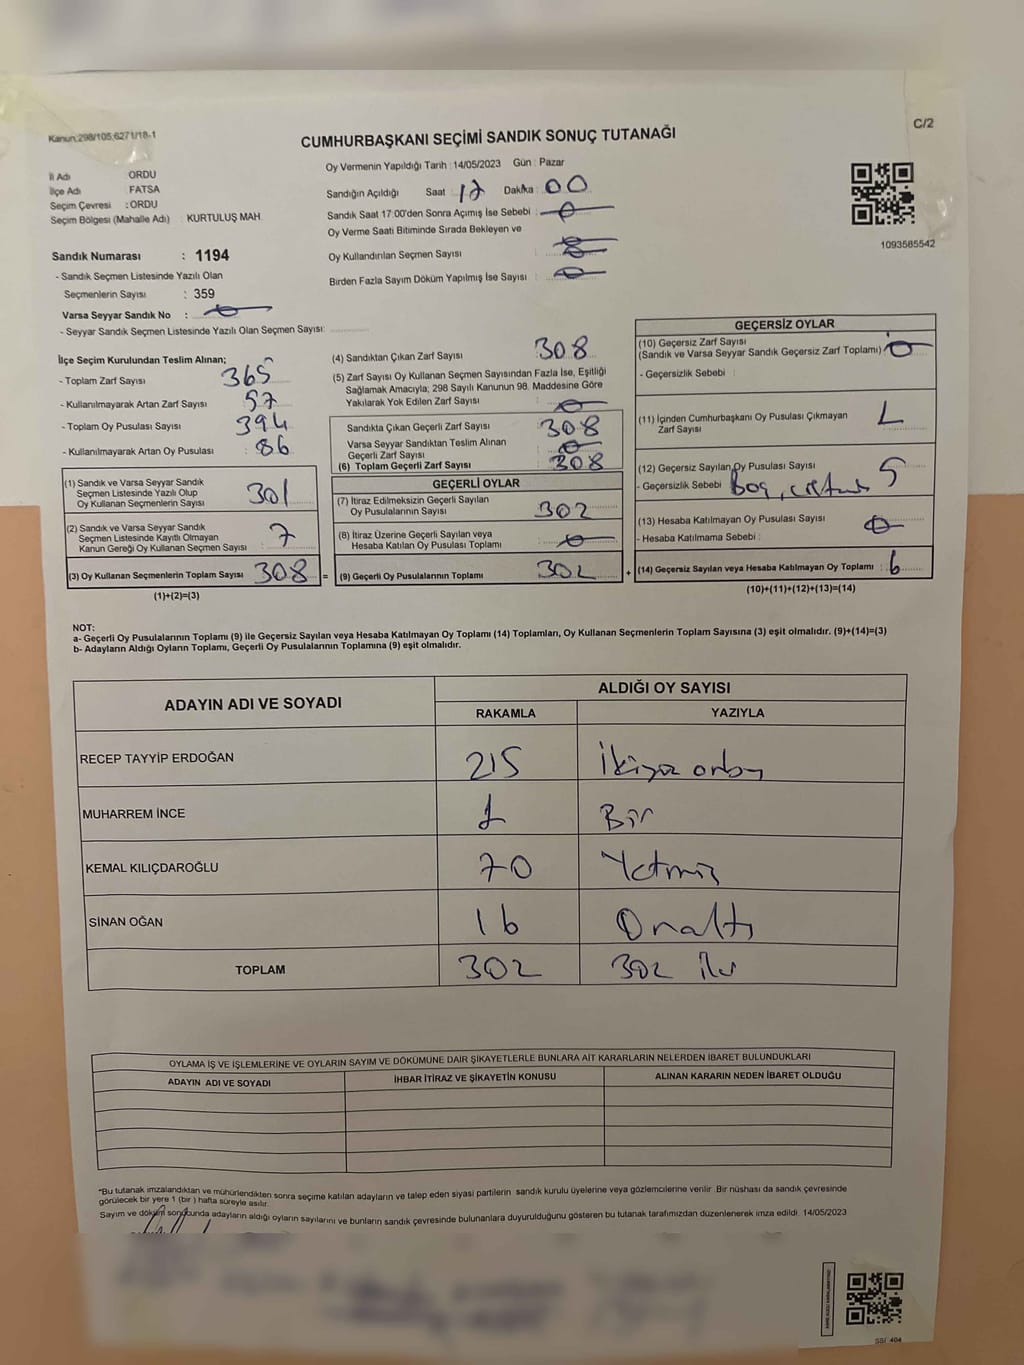 Kanun:298/105;6271/18-1
C/2
CUMHURBAŞKANI SEÇİMİ SANDIK SONUÇ TUTANAĞI
İl Adı ORDU
İlçe Adı FATSA
Seçim Çevresi : ORDU
Seçim Bölgesi (Mahalle Adı) : KURTULUŞ MAH.
Oy Vermenin Yapıldığı Tarih : 14/05/2023 Gün : Pazar
Sandığın Açıldığı Saat : 17 Dakika : 00
Sandık Saat 17:00'den Sonra Açımış İse Sebebi :
Oy Verme Saati Bitiminde Sırada Bekleyen ve
Oy Kullandırılan Seçmen Sayısı :
Birden Fazla Sayım Döküm Yapılmış İse Sayısı :
1093585542
Sandık Numarası : 1194
- Sandık Seçmen Listesinde Yazılı Olan
Seçmenlerin Sayısı : 359
Varsa Seyyar Sandık No :
- Seyyar Sandık Seçmen Listesinde Yazılı Olan Seçmen Sayısı:
İlçe Seçim Kurulundan Teslim Alınan;
- Toplam Zarf Sayısı : 365
- Kullanılmayarak Artan Zarf Sayısı : 57
- Toplam Oy Pusulası Sayısı : 394
- Kullanılmayarak Artan Oy Pusulası : 86
(1) Sandık ve Varsa Seyyar Sandık
Seçmen Listesinde Yazılı Olup
Oy Kullanan Seçmenlerin Sayısı : 301
(2) Sandık ve Varsa Seyyar Sandık
Seçmen Listesinde Kayıtlı Olmayan
Kanun Gereği Oy Kullanan Seçmen Sayısı : 7
(3) Oy Kullanan Seçmenlerin Toplam Sayısı : 308
(1)+(2)=(3)
(4) Sandıktan Çıkan Zarf Sayısı : 308
(5) Zarf Sayısı Oy Kullanan Seçmen Sayısından Fazla İse, Eşitliği
Sağlamak Amacıyla; 298 Sayılı Kanunun 98. Maddesine Göre
Yakılarak Yok Edilen Zarf Sayısı :
Sandıkta Çıkan Geçerli Zarf Sayısı : 308
Varsa Seyyar Sandıktan Teslim Alınan
Geçerli Zarf Sayısı :
(6) Toplam Geçerli Zarf Sayısı : 308
GEÇERLİ OYLAR
(7) İtiraz Edilmeksizin Geçerli Sayılan
Oy Pusulalarının Sayısı : 302
(8) İtiraz Üzerine Geçerli Sayılan veya
Hesaba Katılan Oy Pusulası Toplamı :
= (9) Geçerli Oy Pusulalarının Toplamı : 302
GEÇERSİZ OYLAR
(10) Geçersiz Zarf Sayısı
(Sandık ve Varsa Seyyar Sandık Geçersiz Zarf Toplamı) : 0
- Geçersizlik Sebebi :
(11) İçinden Cumhurbaşkanı Oy Pusulası Çıkmayan
Zarf Sayısı : 1
(12) Geçersiz Sayılan Oy Pusulası Sayısı : 5
- Geçersizlik Sebebi : Boş,
(13) Hesaba Katılmayan Oy Pusulası Sayısı :
- Hesaba Katılmama Sebebi :
+ (14) Geçersiz Sayılan veya Hesaba Katılmayan Oy Toplamı : 6
(10)+(11)+(12)+(13)=(14)
NOT:
a- Geçerli Oy Pusulalarının Toplamı (9) ile Geçersiz Sayılan veya Hesaba Katılmayan Oy Toplamı (14) Toplamları, Oy Kullanan Seçmenlerin Toplam Sayısına (3) eşit olmalıdır. (9)+(14)=(3)
b- Adayların Aldığı Oyların Toplamı, Geçerli Oy Pusulalarının Toplamına (9) eşit olmalıdır.
ADAYIN ADI VE SOYADI
ALDIĞI OY SAYISI
RAKAMLA YAZIYLA
RECEP TAYYİP ERDOĞAN 215 İkiyüz onbeş
MUHARREM İNCE 1 Bir
KEMAL KILIÇDAROĞLU 70 Yetmiş
SİNAN OĞAN 16 Onaltı
TOPLAM 302 302
OYLAMA İŞ VE İŞLEMLERİNE VE OYLARIN SAYIM VE DÖKÜMÜNE DAİR ŞİKAYETLERLE BUNLARA AİT KARARLARIN NELERDEN İBARET BULUNDUKLARI
ADAYIN ADI VE SOYADI İHBAR İTİRAZ VE ŞİKAYETİN KONUSU ALINAN KARARIN NEDEN İBARET OLDUĞU
"Bu tutanak imzalandıktan ve mühürlendikten sonra seçime katılan adayların ve talep eden siyasi partilerin sandık kurulu üyelerine veya gözlemcilerine verilir. Bir nüshası da sandık çevresinde
görülecek bir yere 1 (bir ) hafta süreyle asılır.
Sayım ve döküm sonucunda adayların aldığı oyların sayılarını ve bunların sandık çevresinde bulunanlara duyurulduğunu gösteren bu tutanak tarafımızdan düzenlenerek imza edildi. 14/05/2023
SSI 404